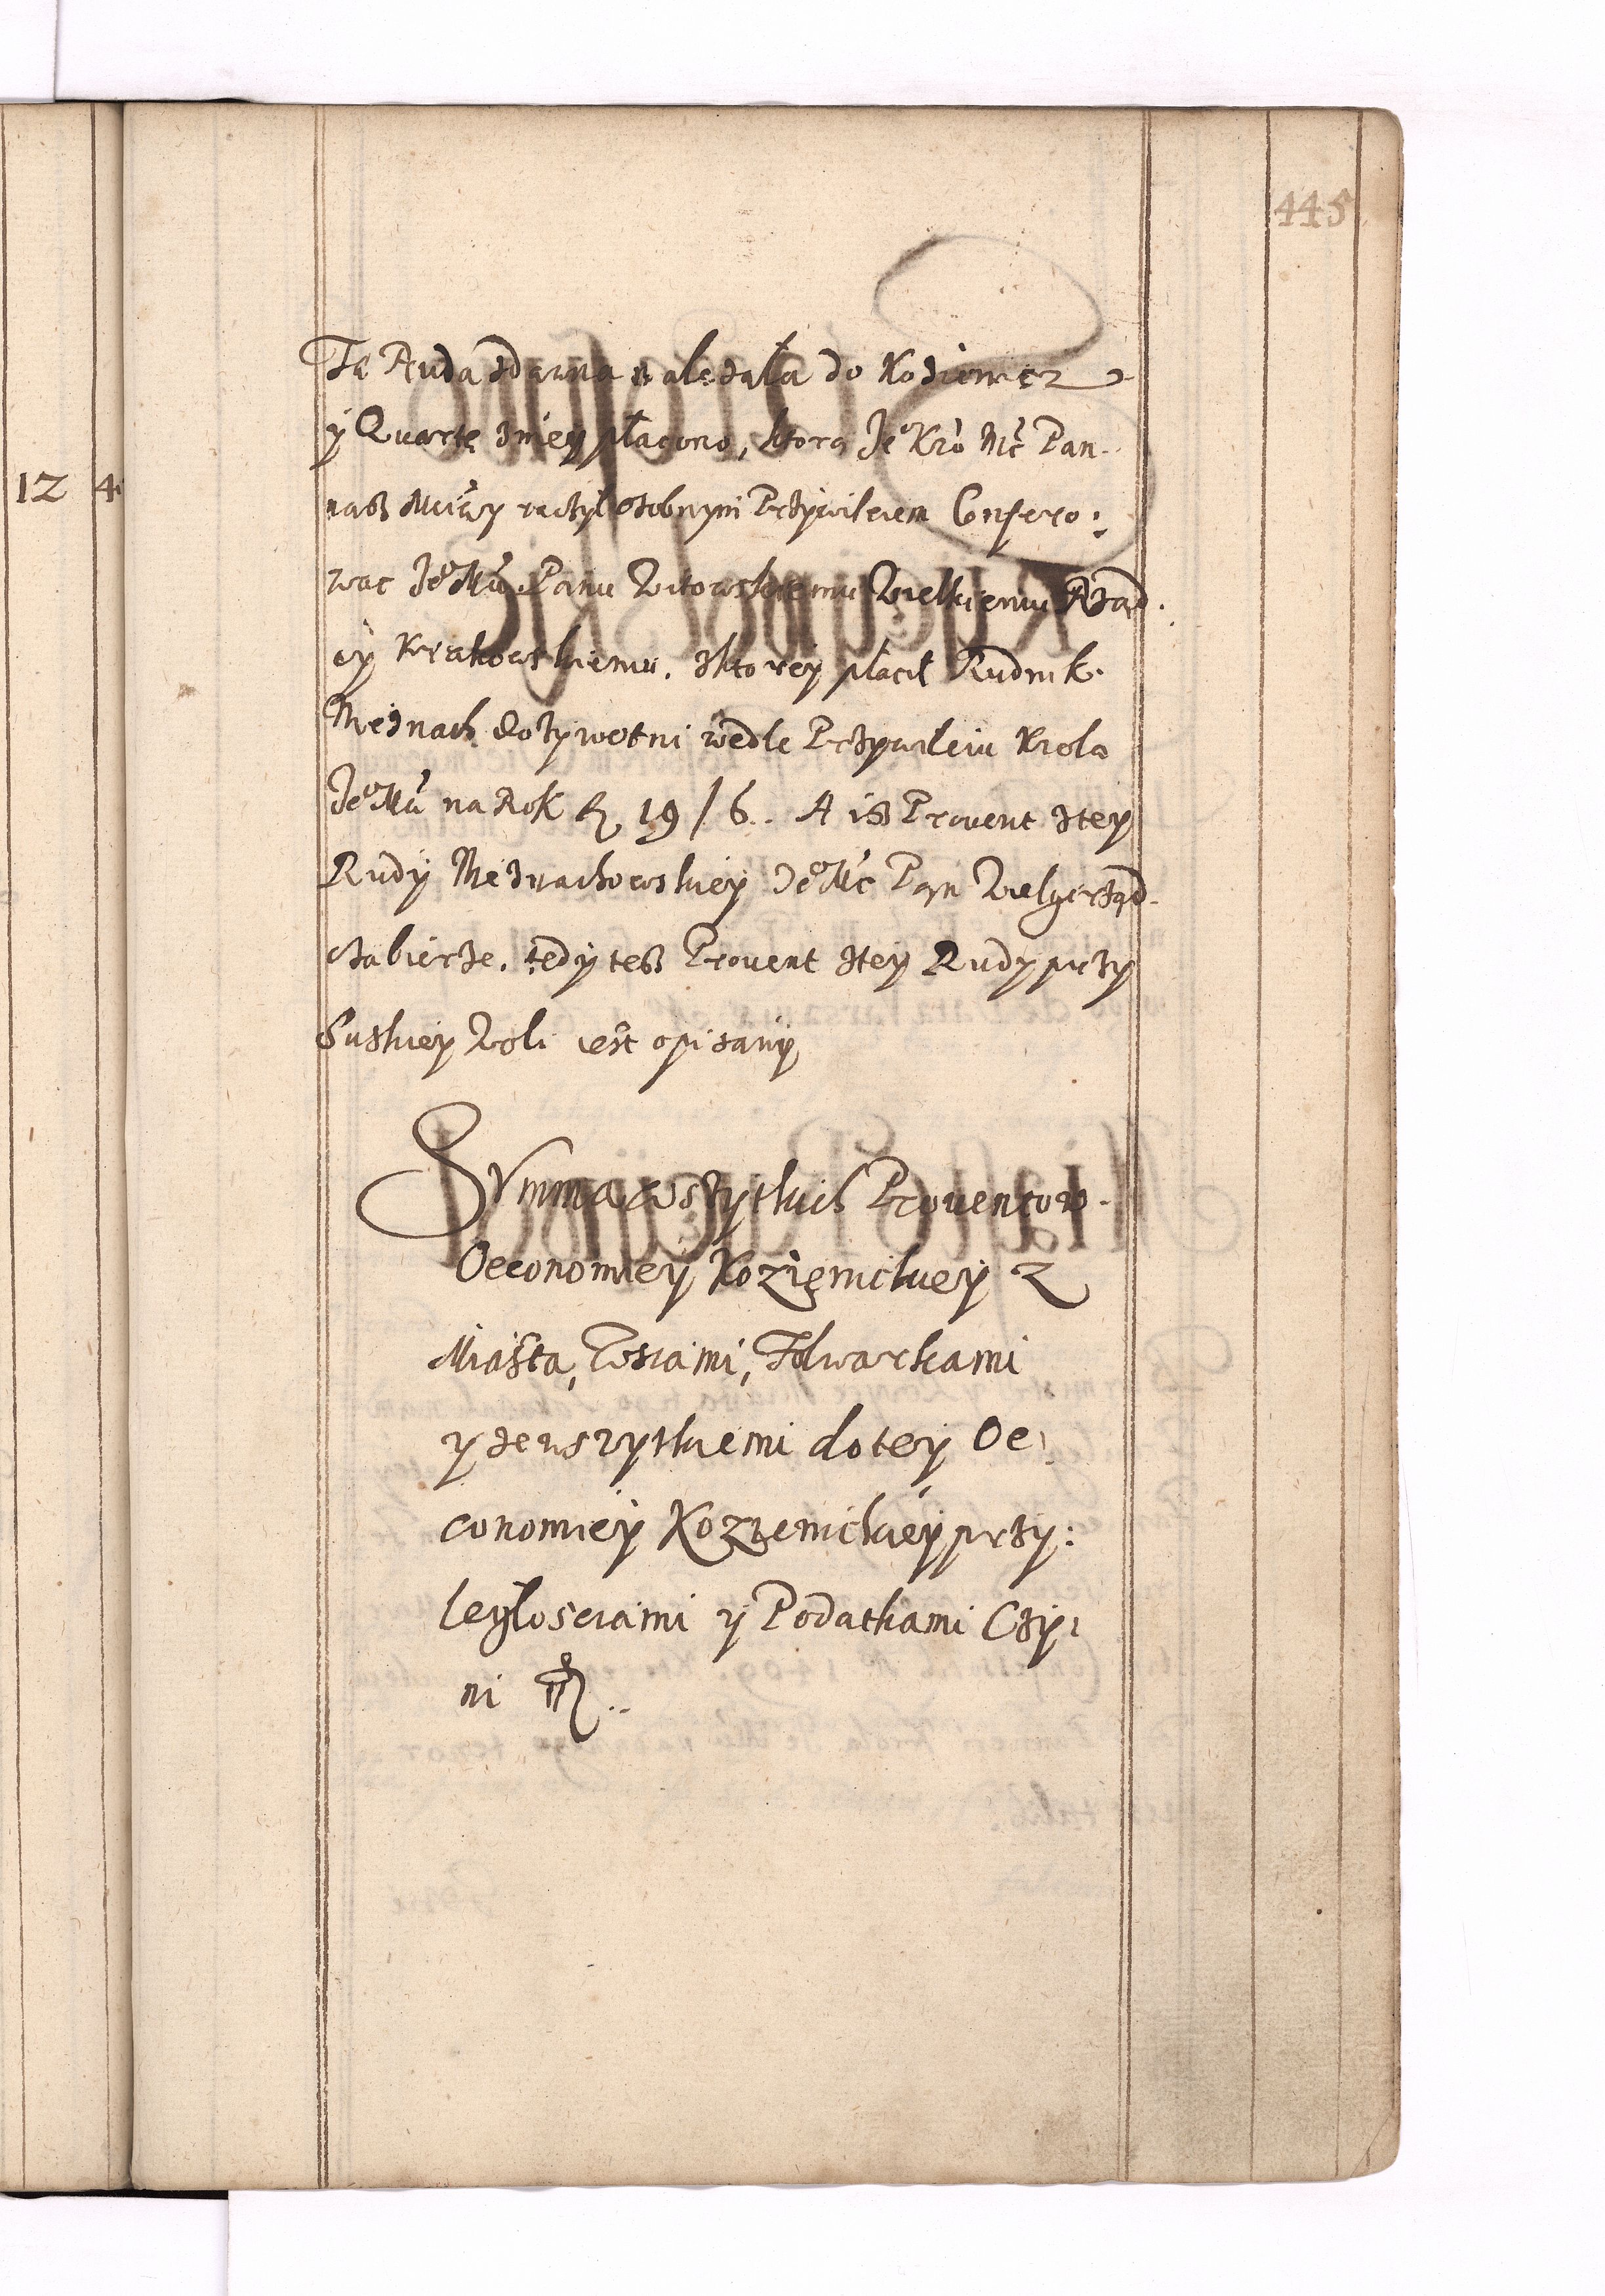 445
12 4
Ta Ruda zdawna nalezała do Kozienicz
ÿ Quartę zniey płacono, ktorą Jeo Kro Mć Pan
nasz Mciwy raczył osobnym Przywileiem Confero:
wac JeoMci Panu Witowskiemu Wielkiemu Rząd
cÿ Krakowskiemu. zktorey płacił Rudnik
Meznach dozywotni wedle Przywileiu Krola
JeoMci na Rok 19/6. A isz Prouent ztey
Rudÿ Meznachowskiey JeoMć Pan Wielgorząd
cza bierze. tedÿ tesz Prouent ztey Rudy przy
Suskiey Woli iest opisanÿ
Summa wszytkich Prouentow
Oeconomieÿ Kozienickieÿ z
Miasta, Wsiami, Folwarkami
y zewszytkiemi dotey Oe
conomieÿ Kozienickieÿ przy:
ległosciami ÿ Podatkami Czy
ni